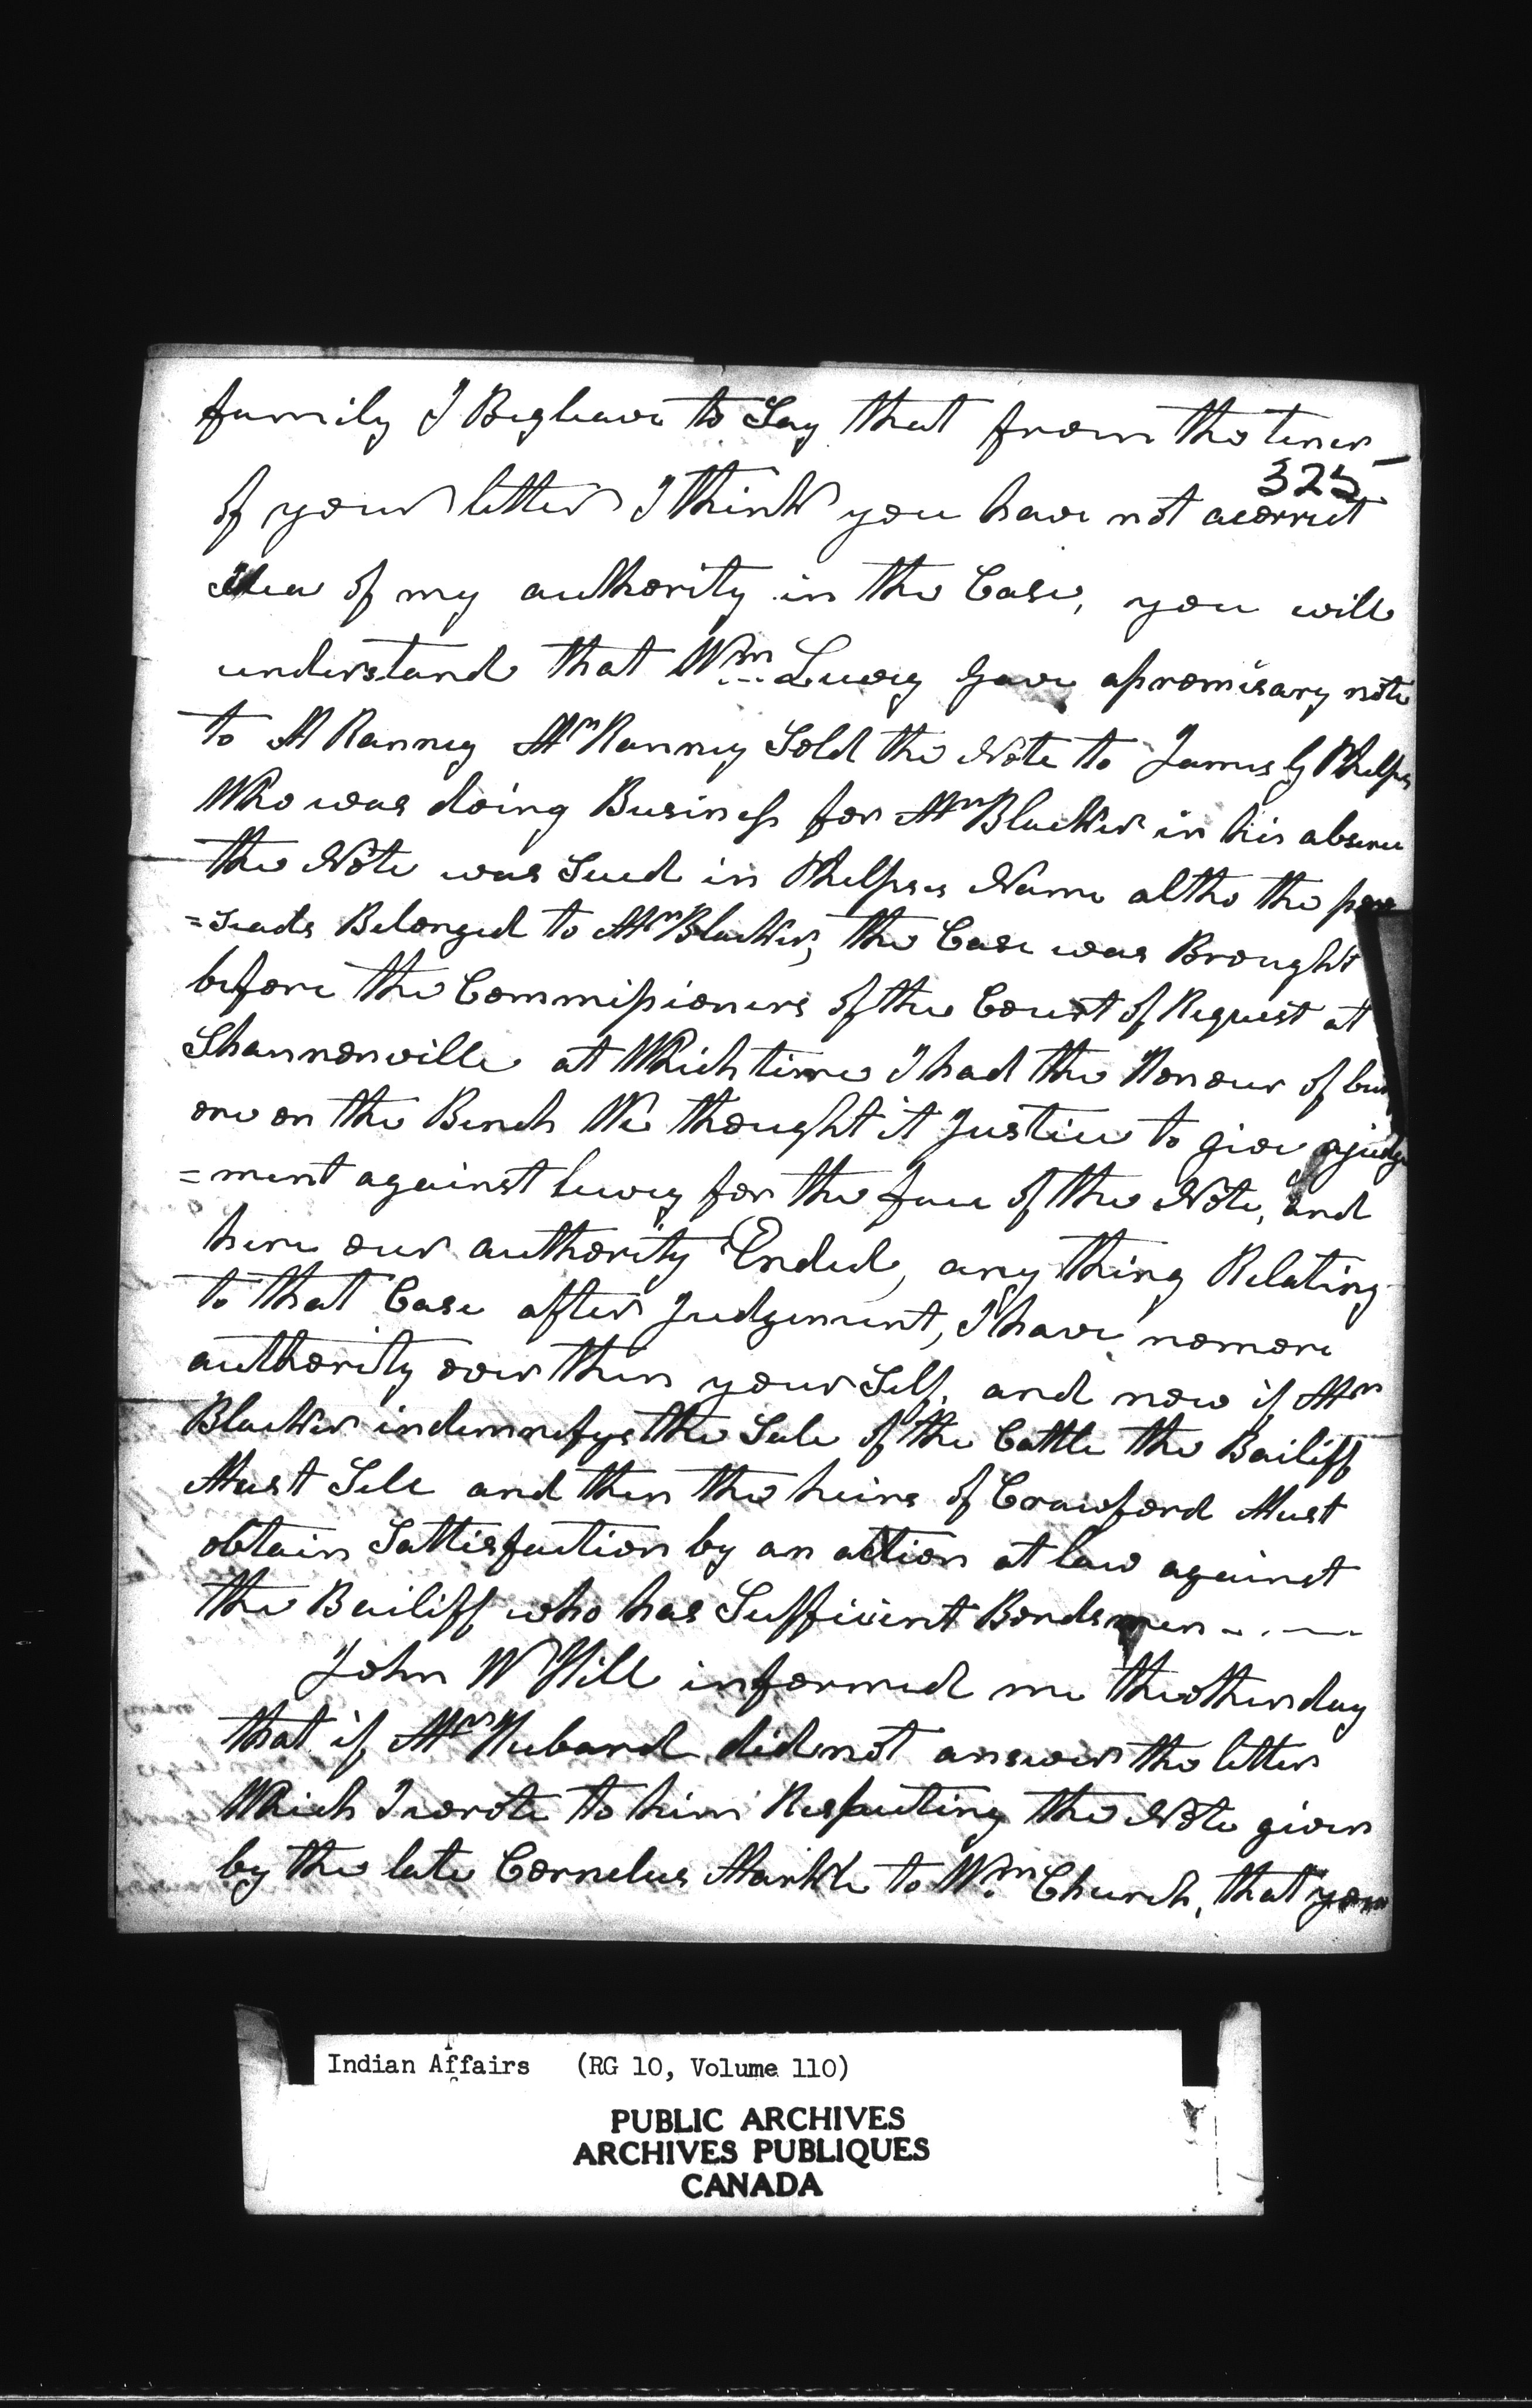 family I Beg leave to Say that from the tener
325
of your letter I think you have not a correct
idea of my authority in the Case, you will
understand that Wm Lucey gave a promisary note
to M Ranney Mr Ranney Sold the Note to James G Phelps
Who was doing Business for Mr Blacker in his absence
the Note was Sued in Phelpses Name altho the
=ceads Belonged to Mr Blacker, the Case was Brought
before the Commissioners of the Court of Request at
Shannonville at Which time I had the Honour of
one on the Bench We thought it Justice to give a judge
=ment against lucey for the face of the Note, and
here our authority Ended, any thing Relating
to that Case after Judgement, I have no more
authority over then your Self, and now if Mr
Blacker indemnifys the Sale of the Cattle the Bailiff
Must Sell and then the heirs of Crawford Must
obtain Sattisfaction by an action at law against
the Bailiff who has Sufficient Bondsmen
John W Hill informed me the other day
that if Mr Hubard did not answer the letter
Which I wrote to him Respecting the Note given
by the late Cornelus Markle to Wm Church, that you
Indian Affairs (RG 10, Volume 110)
PUBLIC ARCHIVES
ARCHIVES PUBLIQUES
CANADA